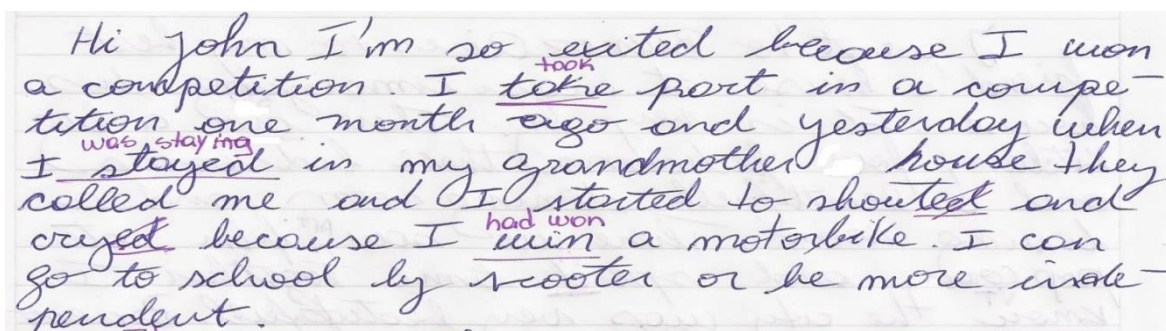 Hi John I'm so exited because I won
took
a competition I take part in a compe-
tition one month ago and yesterday when
was staying
I stayed in my grandmother house they
called me and I started to shouted and
had won
cryed because I win a motorbike. I can
go to school by scooter or be more inde-
pendent.